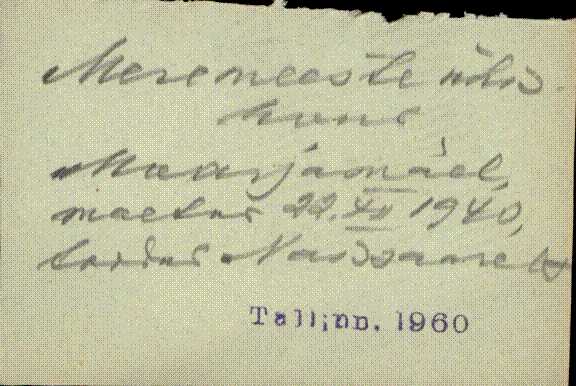 Meremeeste ühis-
haud
Maarjamäel,
maetud 22.XII 1940,
toodud Naissaarelt
Tallinn. 1960